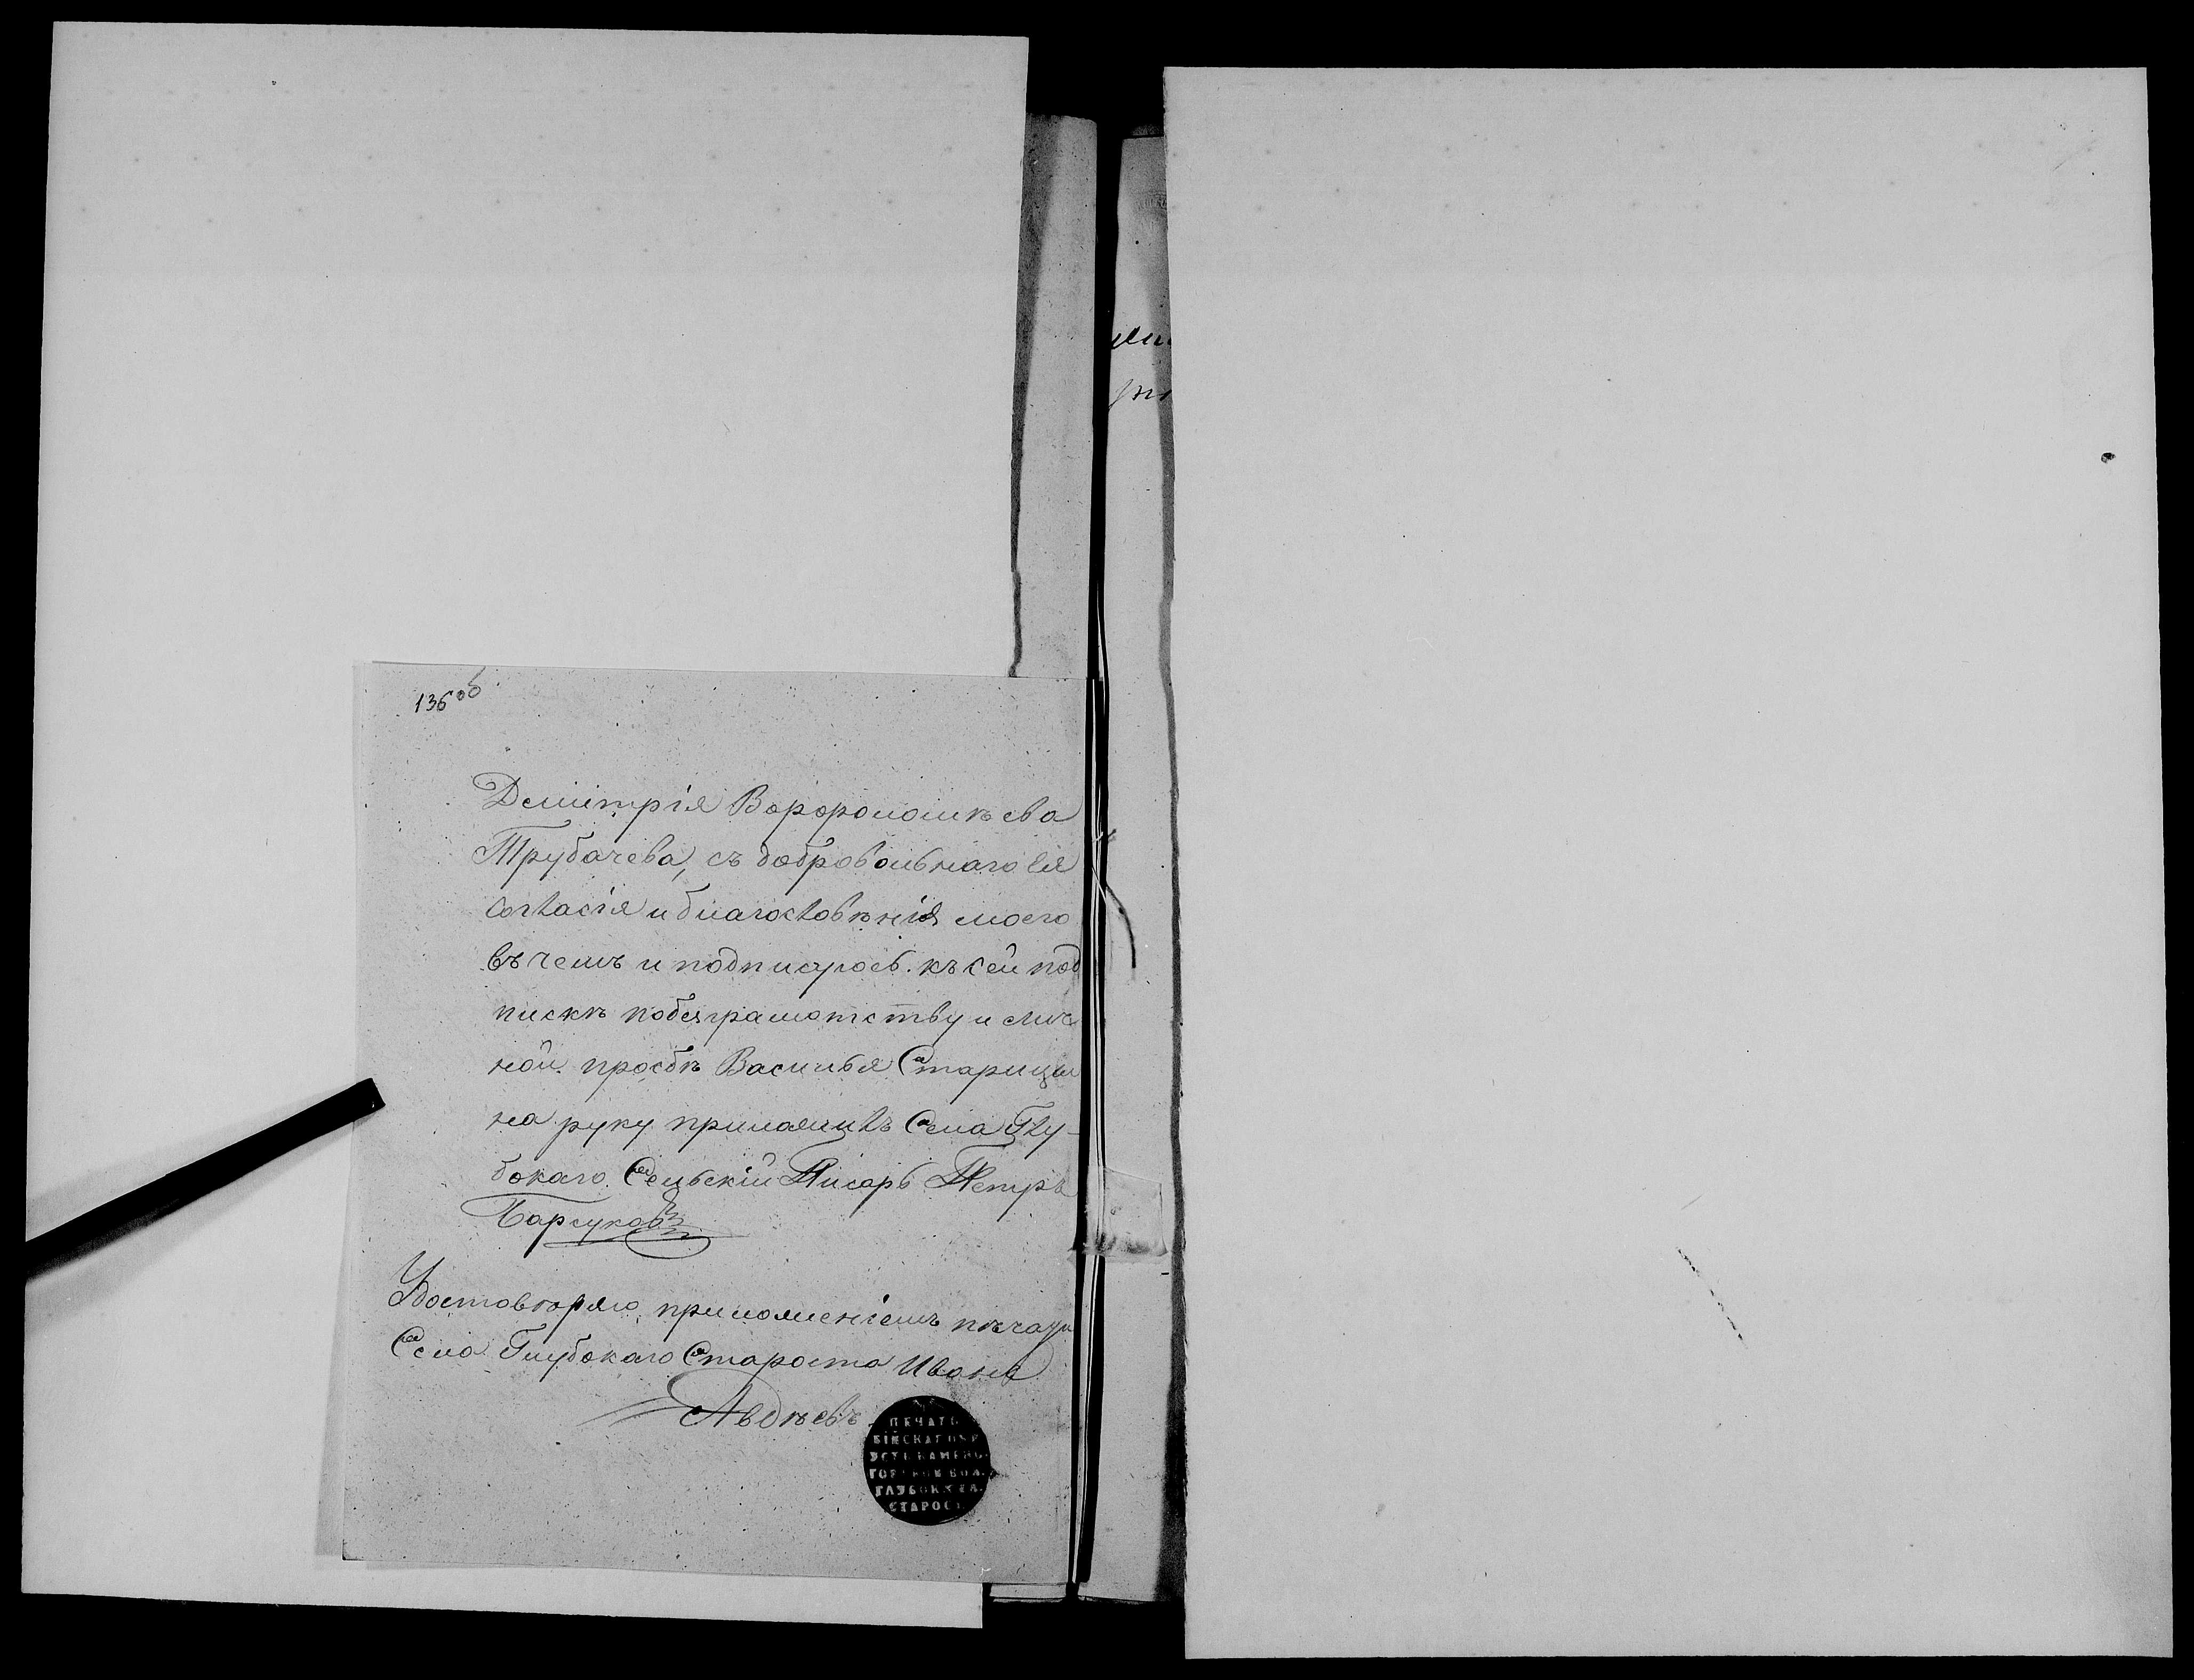 136 об
Демитрія Ворфоломѣева
Трубачева, съ добровольнаго ея
согласія и благословѣнія моего
въ чемъ и подписуюсь. къ сей под
пискѣ по безграмотству и лич
ной просбѣ Василья Старицы
на руку приложилъ Села Глу-
бокаго Сельскій Писарь Петръ
Барсуковъ
Удостовѣряю приложеніемъ пѣчати
Села Глубокаго Староста Иванъ
Авдѣевъ
ПЕЧАТЬ
БІЙСКАГО ОКР
УСТЬКАМЕНО
ГОРСКОЙ ВОЛ.
ГЛУБОК. СЕЛ.
СТАРОС